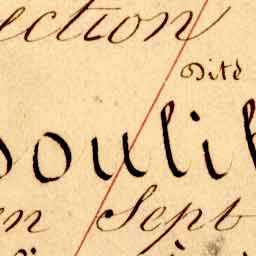 ection
Dité
oulif
en Sept